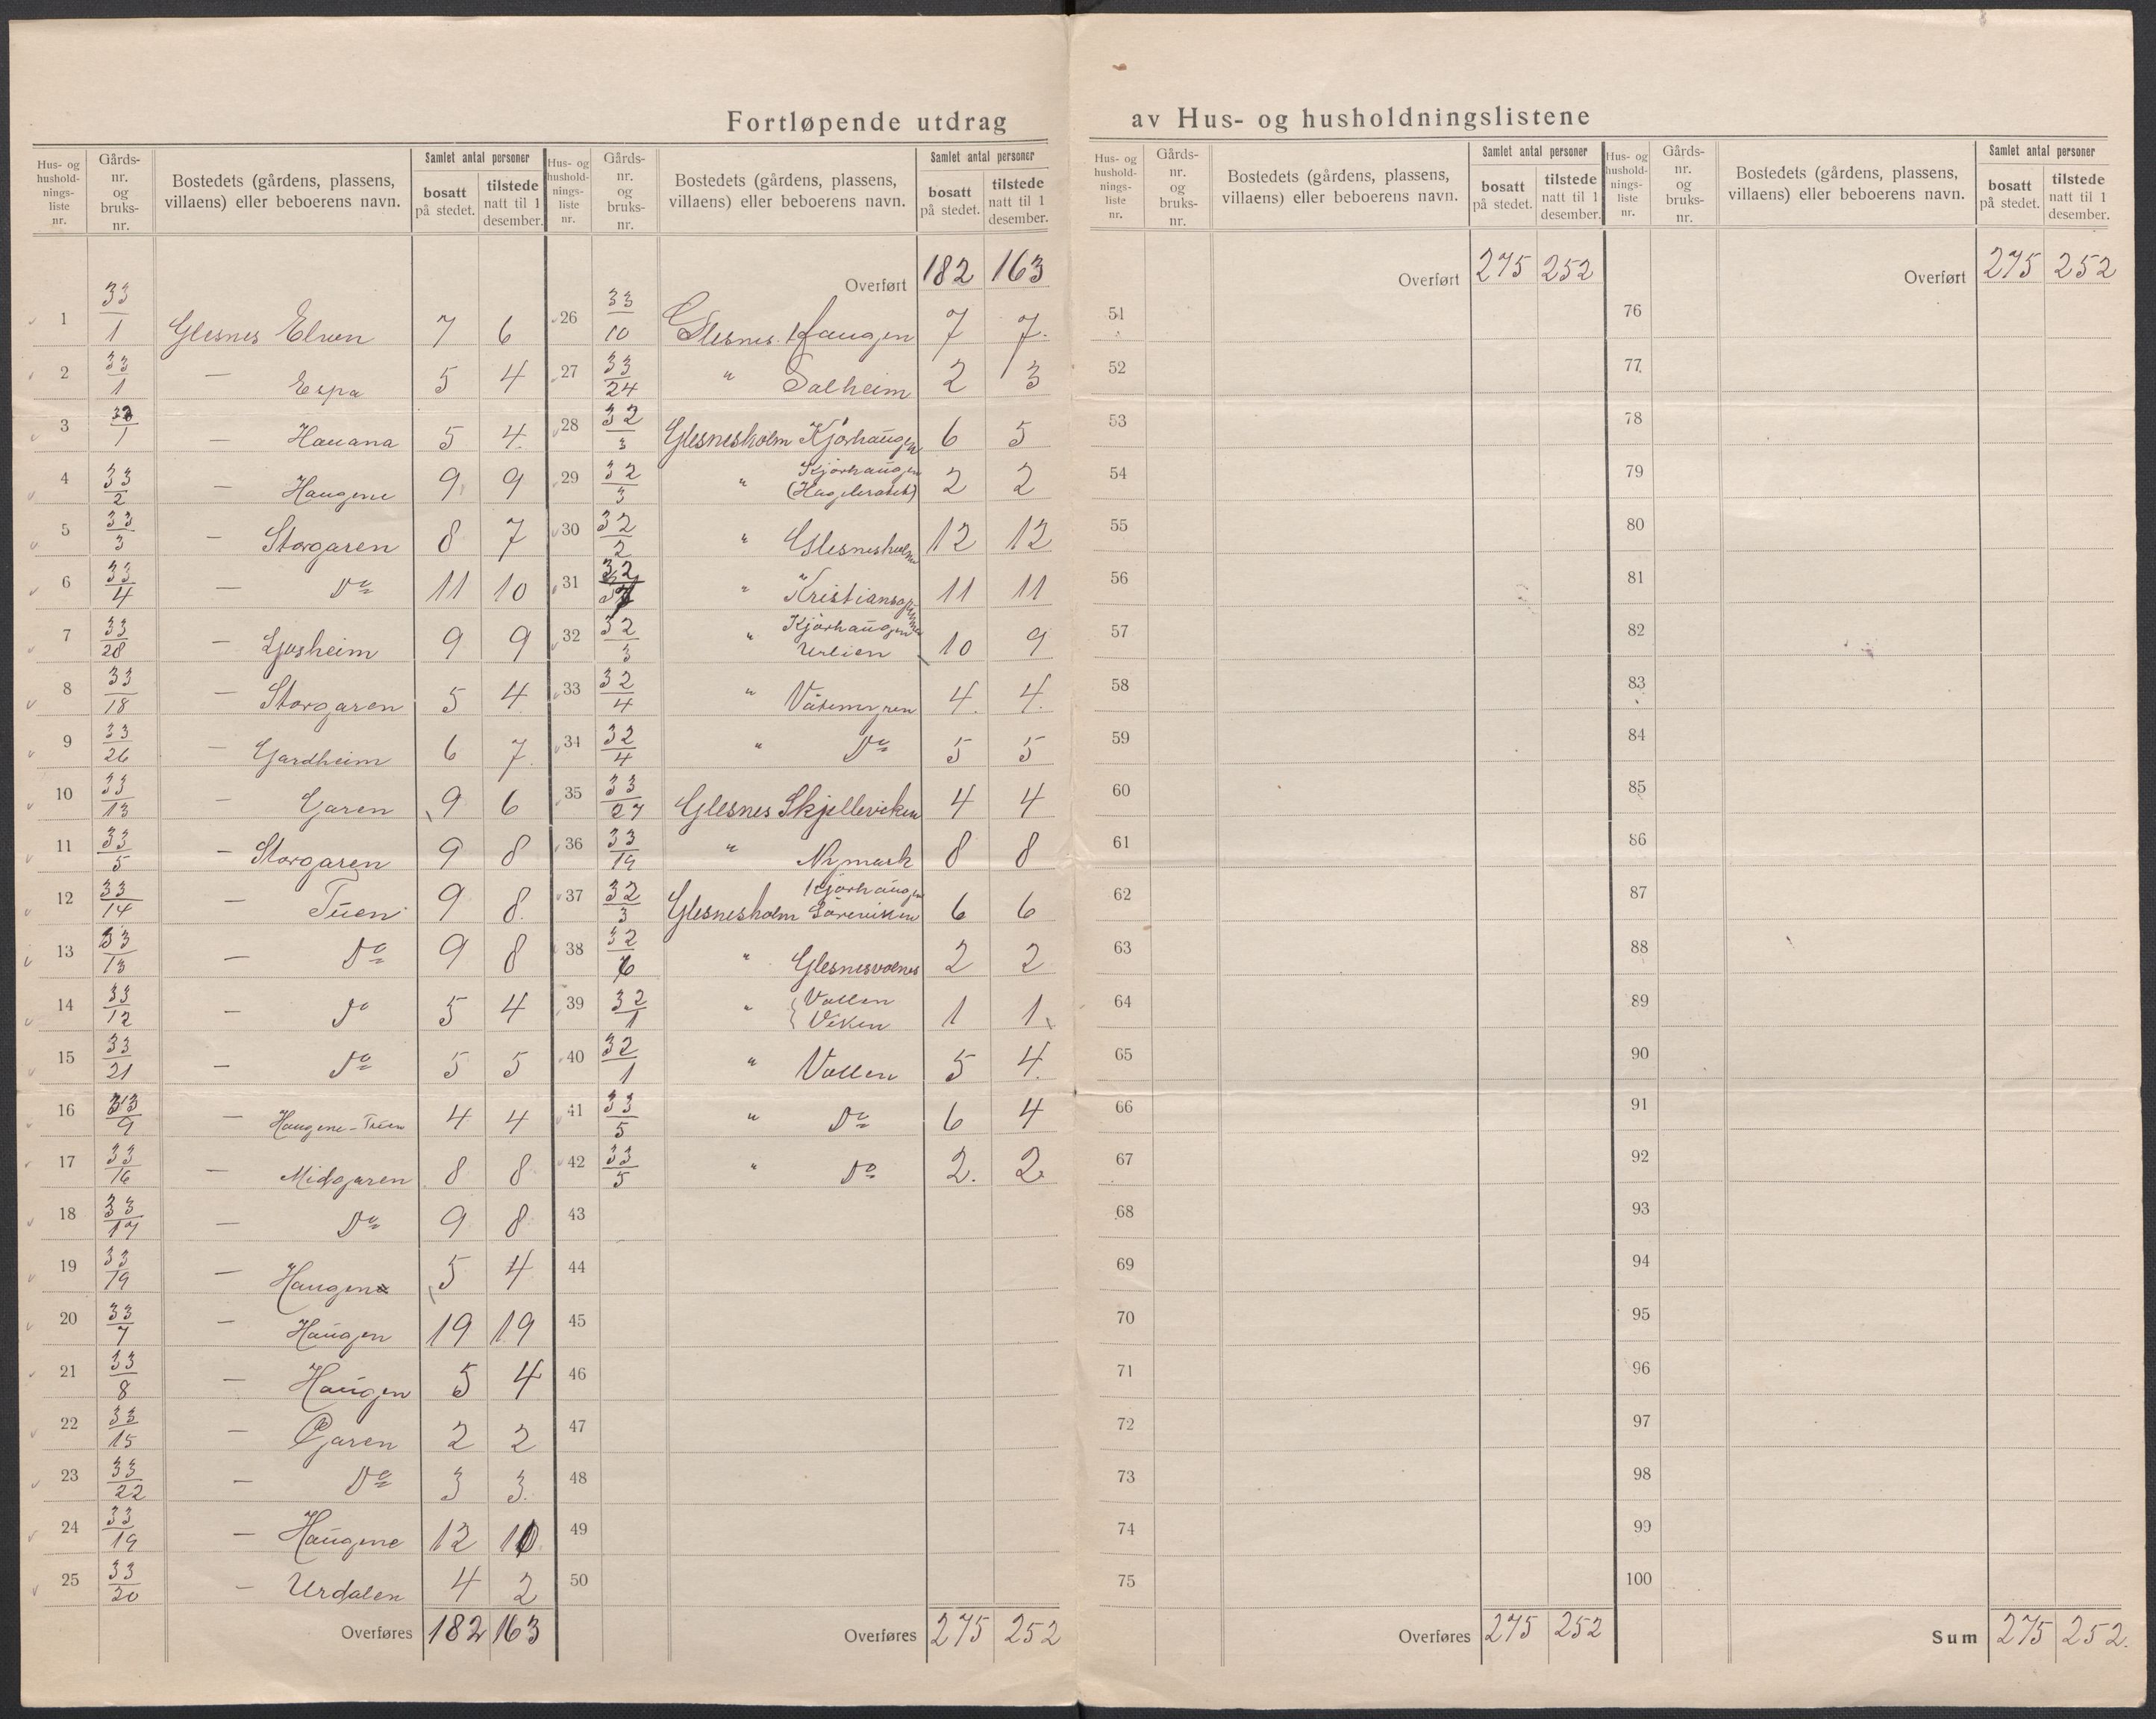 Fortløpende utdrag av Hus- og husholdningslistene
Hus- og hushold- nings- liste nr. | Gårds- nr. og bruks- nr. | Bostedets (gårdens, plassens, villaens) eller beboerens navn. | Samlet antal personer | bosatt på stedet. | tilstede natt til 1 desember.
1 33/1 Glesnes Elven 7 6
2 33/1 — Espa 5 4
3 33/1 — Hauana 5 4
4 33/2 — Haugene 9 9
5 33/3 — Storgaren 8 7
6 33/4 — Do 11 10
7 33/28 — Ljosheim 9 9
8 33/18 — Storgaren 5 4
9 33/26 — Gardheim 6 7
10 33/13 — Garen 9 6
11 33/5 — Storgaren 9 8
12 33/14 — Tuen 9 8
13 33/13 — Do 9 8
14 33/12 — Do 5 4
15 33/21 — Do 5 5
16 33/9 — Haugene-Tuen 4 4
17 33/16 — Midgaren 8 8
18 33/17 — Do 9 8
19 33/19 — Haugen 5 4
20 33/7 — Haugen 19 19
21 33/8 — Haugen 5 4
22 33/15 — Garen 2 2
23 33/22 — Do 3 3
24 33/19 — Haugene 12 10
25 33/20 — Urdalen 4 2
Overføres 182 163
Hus- og hushold- nings- liste nr. | Gårds- nr. og bruks- nr. | Bostedets (gårdens, plassens, villaens) eller beboerens navn. | Samlet antal personer | bosatt på stedet. | tilstede natt til 1 desember.
Overført 182 163
26 33/10 Glesnes Haugen 7 7
27 33/24 " Solheim 2 3
28 32/3 Glesnesholm Kjørhaugen 6 5
29 32/3 " Kjørhaugen 2 2
30 32/2 " Glesnesholm 12 12
31 32 " 11 11
32 32/3 " Kjørhaugen Urlien 10 9
33 32/4 " Våtemyren 4 4
34 32/4 " Do 5 5
35 33/27 Glesnes Skjelleviken 4 4
36 33/19 " Nymark 8 8
37 32/3 Glesnesholm Kjørhaugen Søreviken 6 6
38 32/6 " Glesnesvolnes 2 2
39 32/1 " Vollen Viken 1 1
40 32/1 " Vollen 5 4
41 33/5 " Do 6 4
42 33/5 " Do 2 2
43
44
45
46
47
48
49
50
Overføres 275 252
Hus- og hushold- nings- liste nr. | Gårds- nr. og bruks- nr. | Bostedets (gårdens, plassens, villaens) eller beboerens navn. | Samlet antal personer | bosatt på stedet. | tilstede natt til 1 desember.
Overført 275 252
51
52
53
54
55
56
57
58
59
60
61
62
63
64
65
66
67
68
69
70
71
72
73
74
75
Overføres 275 252
Hus- og hushold- nings- liste nr. | Gårds- nr. og bruks- nr. | Bostedets (gårdens, plassens, villaens) eller beboerens navn. | Samlet antal personer | bosatt på stedet. | tilstede natt til 1 desember.
Overført 275 252
76
77
78
79
80
81
82
83
84
85
86
87
88
89
90
91
92
93
94
95
96
97
98
99
100
Sum 275 252.